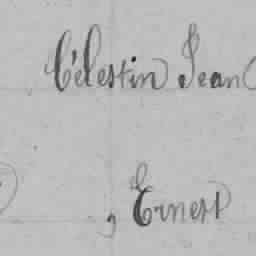 Célestin Jean
, Ernest